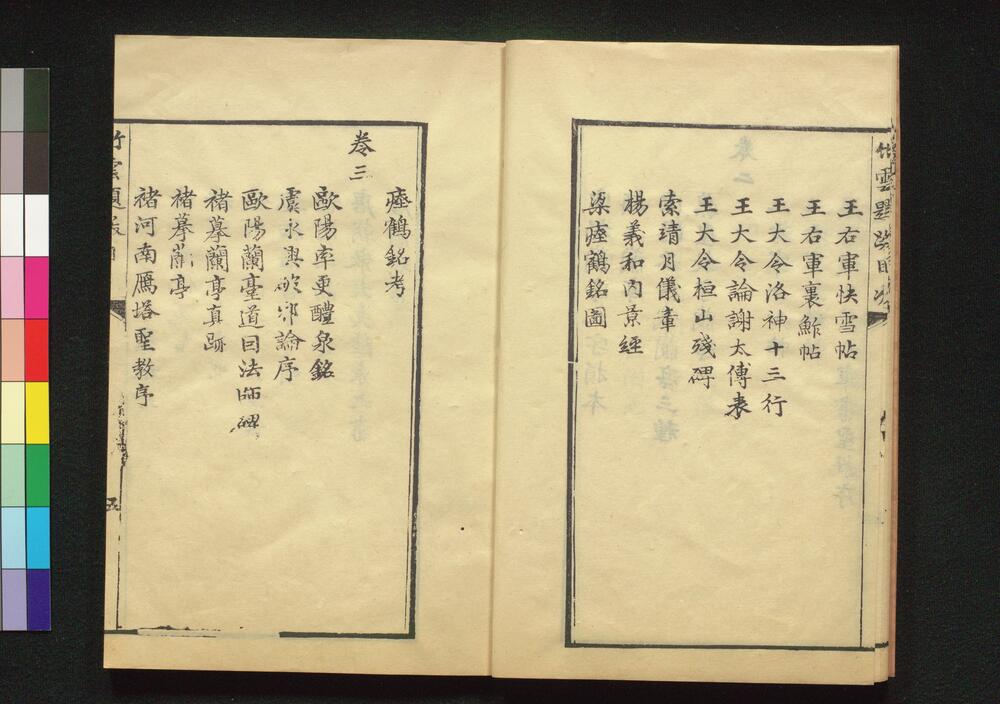 王右軍快雪帖
王右軍裹鮓帖
王大令洛神十三行
王大令論謝太傅表
王大令桓山殘碑
索靖月儀章
楊羲和內景經
梁瘞鶴銘圖
瘞鶴銘考
卷三
歐陽率更醴泉銘
虞永興破邪論序
歐陽蘭臺道因法師碑
褚摹蘭亭真跡
褚摹蘭亭
褚河南鴈塔聖教序
竹雲題跋
五